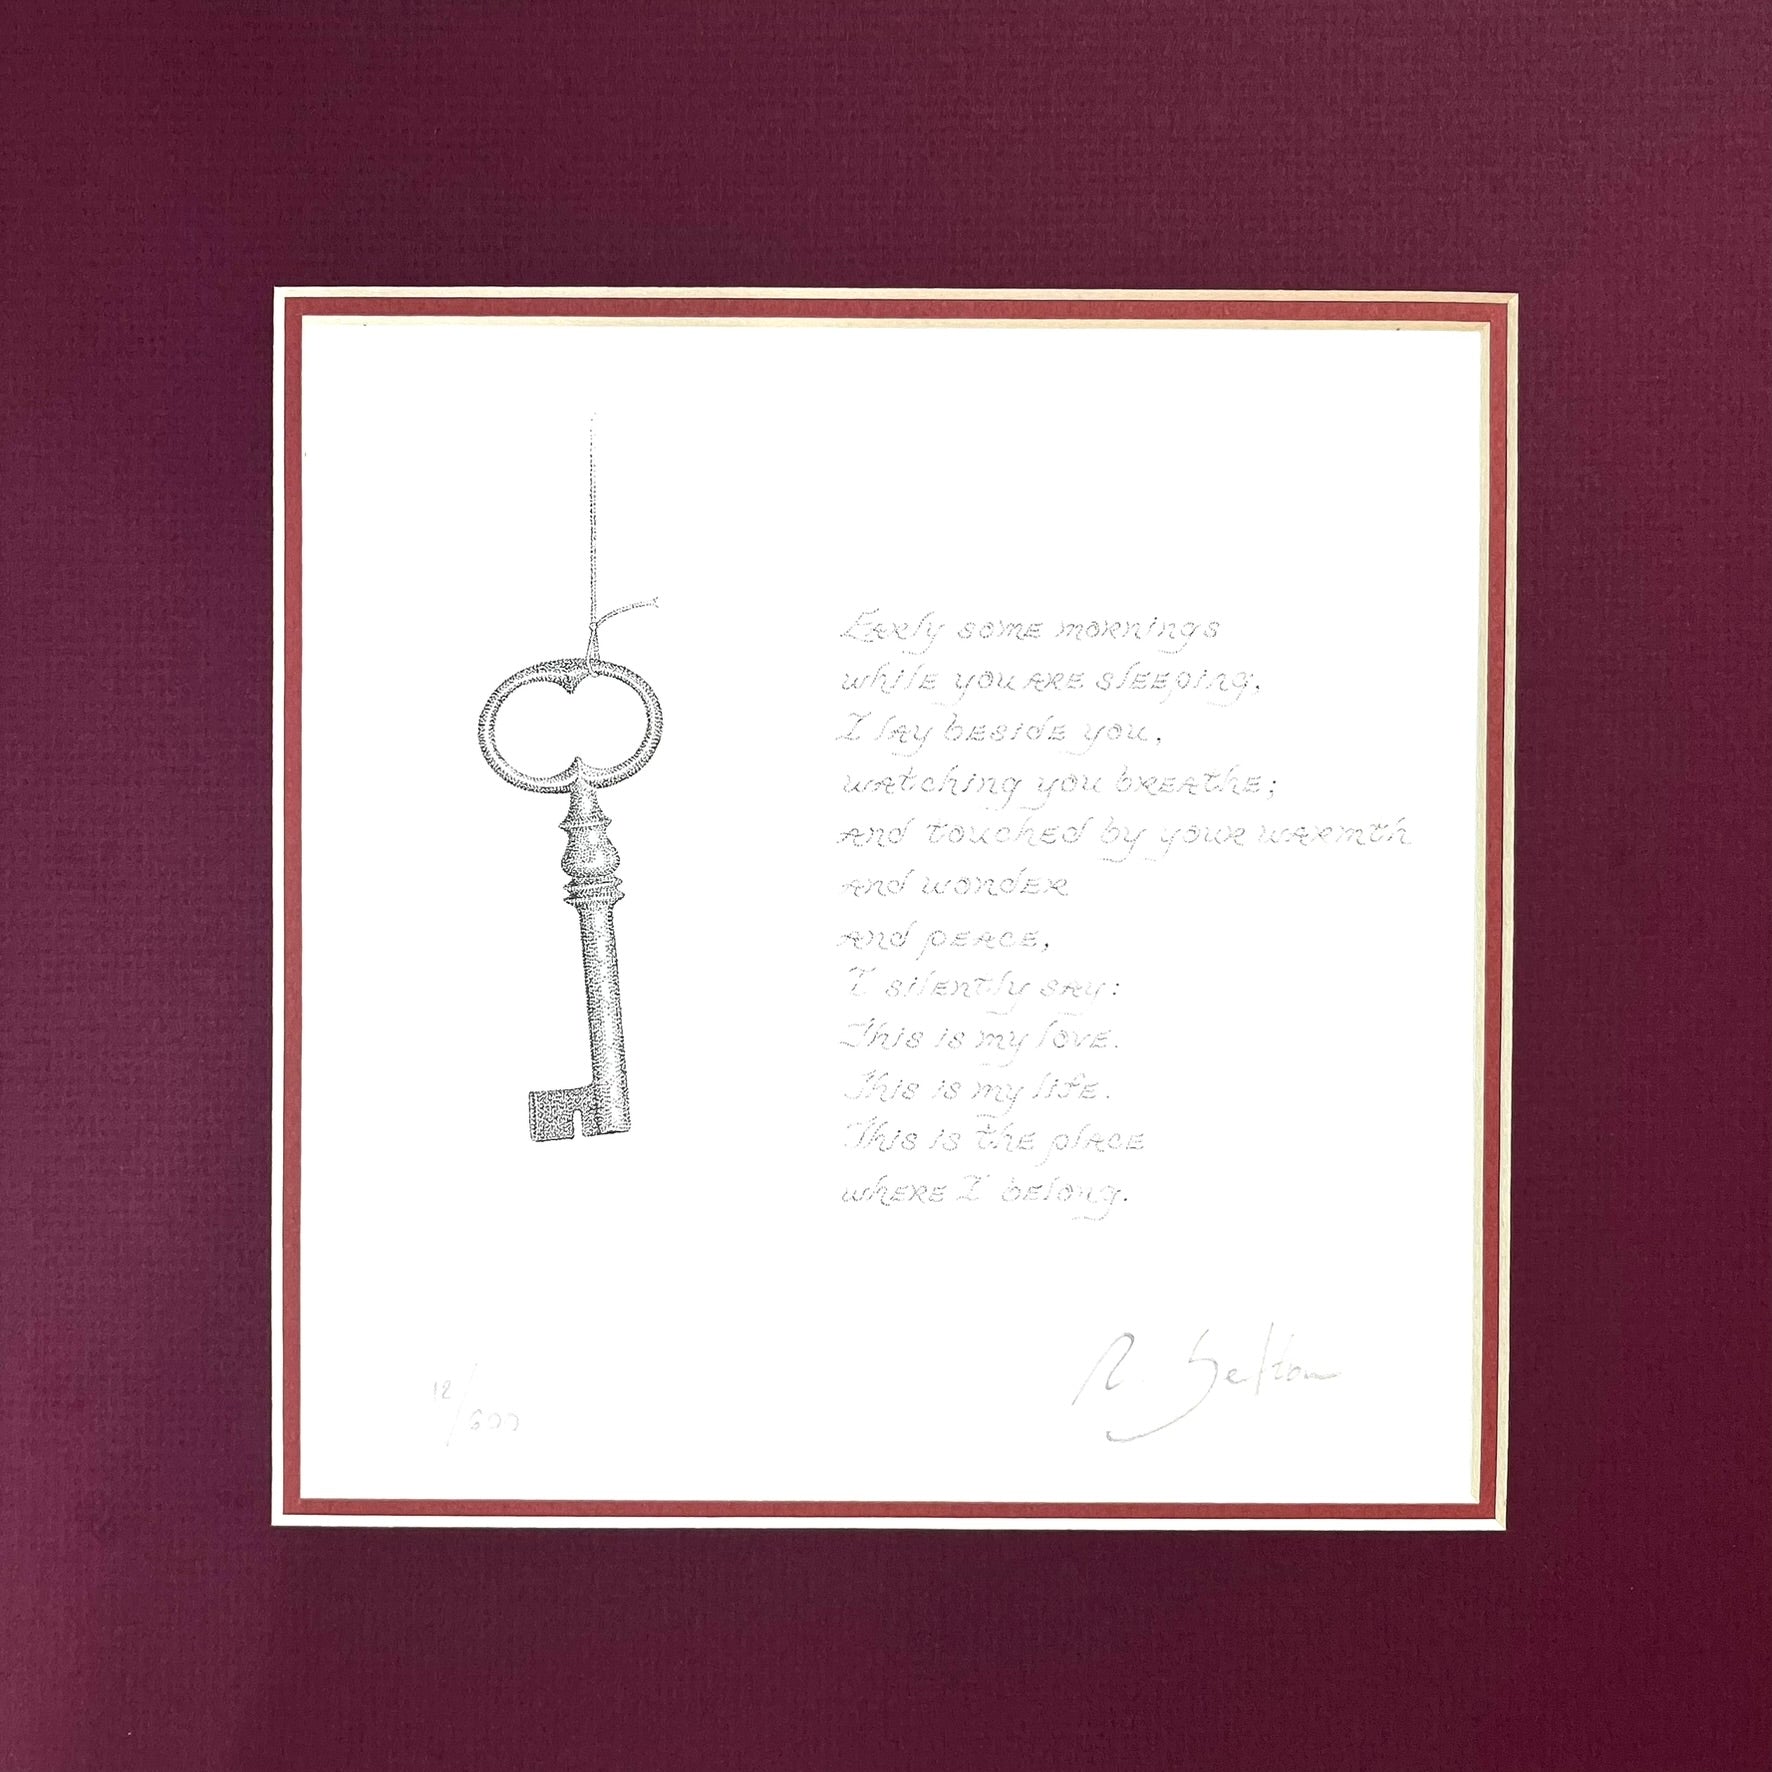 Early some mornings
while you are sleeping,
I lay beside you,
watching you breathe;
and touched by your warmth
and wonder
and peace,
I silently say:
This is my love.
This is my life.
This is the place
where I belong.
12/600
R. Selton